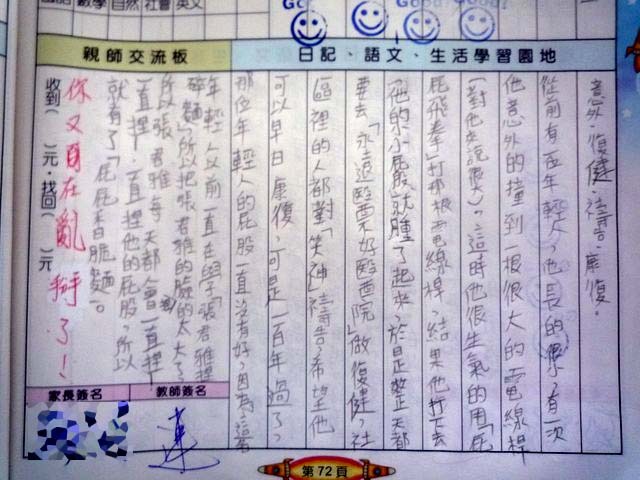 數學 自然 社會 英文
Good
親師交流板
日記、語文、生活學習園地
意外.復健.禱告.康復.
從前有一位年輕人,他長的很了有一次
他意外的撞到一根很大的電線桿
(對他來說很大)。這時他很生氣的用「屁
屁飛拳」打那根電線桿,結果他打下去
他的小屁股就腫了起來,於是整天都
要去「永遠醫要不好醫西院」做復健,社
區裡的人都對「笑神」禱告,希望他
可以早日康復,可是一百年過了,
那位年輕人的屁股一直沒有好,因為這
年輕人以前一直在學「張君雅捏
碎麵」所以把張君雅的臉的太大了
所以張君雅每天都會一直捏
一直捏.一直捏他的屁股,所以
就有了「屁屁香脆麵」。
你又自在亂掰了!
收到( )元.找回( )元
家長簽名
教師簽名
第72頁